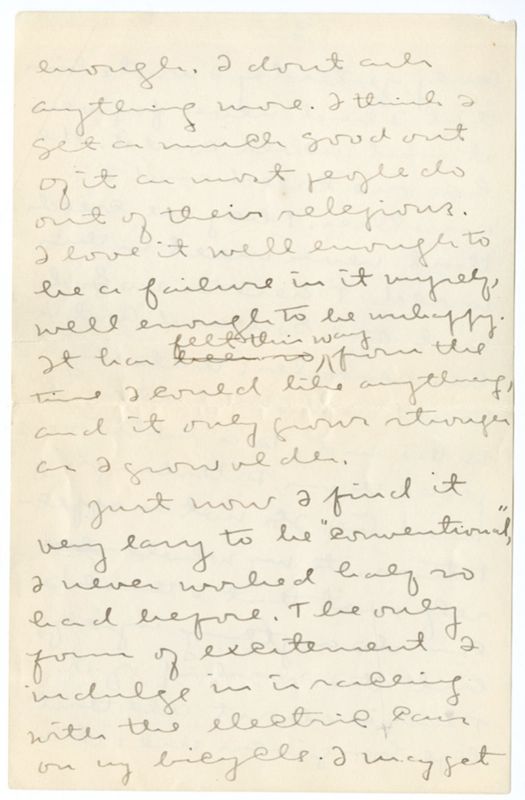 enough. I dont ask
anything more. I think I
get as much good out
of it as most people do
out of their religions.
I love it well enough to
be a failure in it myself,
well enough to be unhappy.
felt this way
It has been so, from the
time I could like anything,
and it only grows stronger
as I grow older.
Just now I find it
very easy to be "conventional",
I never worked half so
hard before. The only
form of excitement I
indulge in is racing
with the electric cars
on my bicycle. I may get